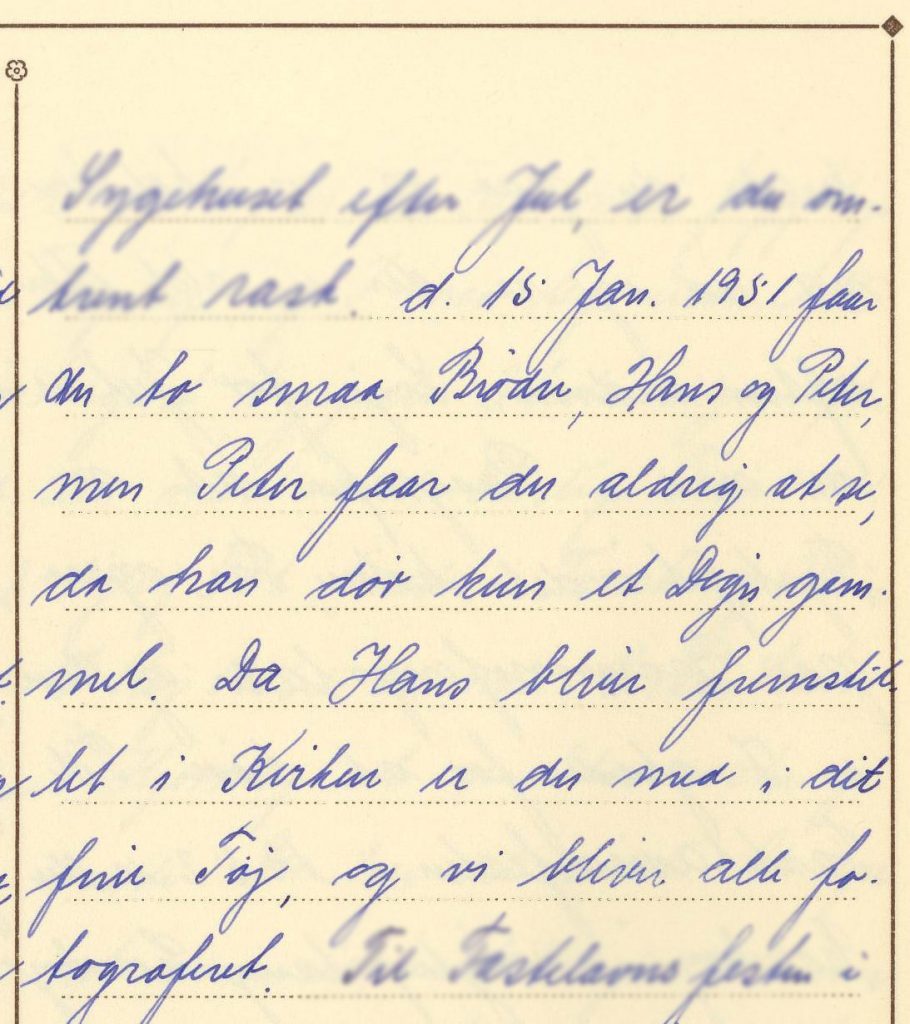 Sygehuset efter Jul, er du om-
trent rask. d. 15 Jan. 1951 faar
du to smaa Brødre, Hans og Peter,
men Peter faar du aldrig at se,
da han dør kun et Døgn gam-
mel. Da Hans bliver fremstil-
let i Kirken er du med i dit
fine Tøj, og vi bliver alle fo-
tograferet. Til Fastelavnsfesten i